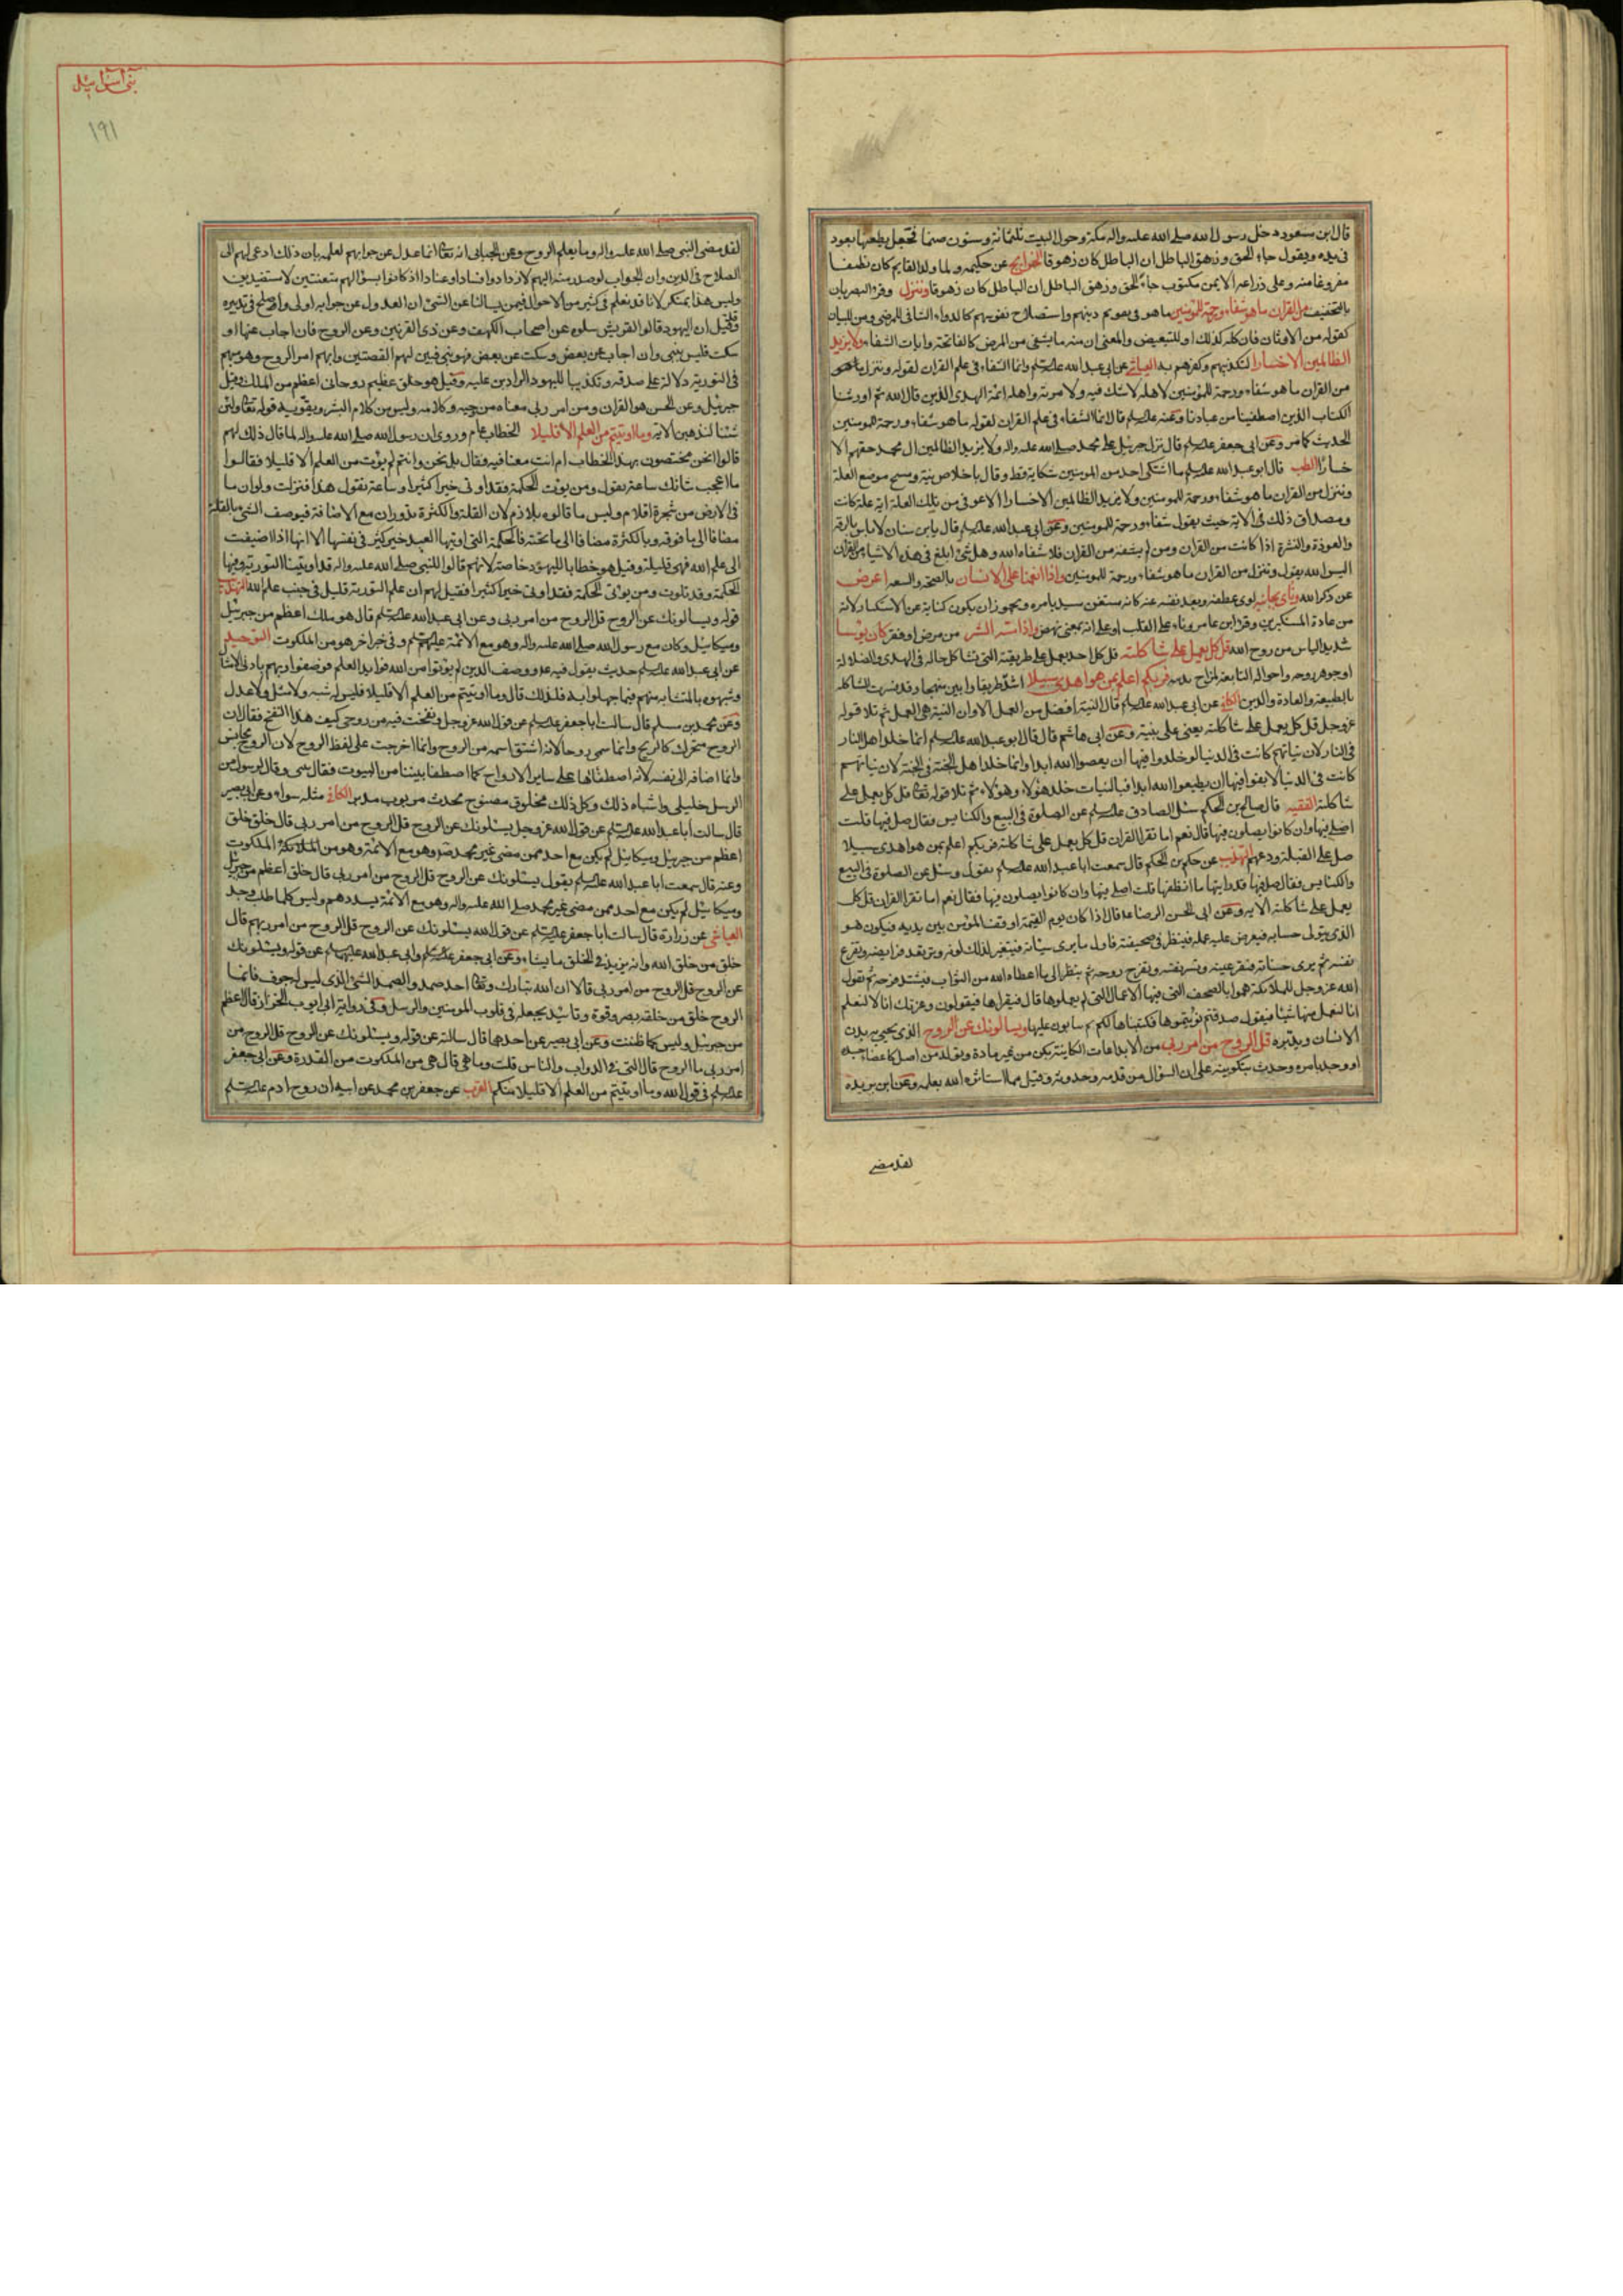 قال ابن مسعود دخل رسول الله صلى الله عليه واله مكة وحول البيت ثلثمائة وستون صنما فجعل يطعنها بعود
فى يده ويقول جاء الحق وزهق الباطل ان الباطل كان زهوقا الخرايج عن حكيمة ولما ولد القايم كان نظيفا
مفروغا منه وعلى ذراعه الايمن مكتوب جاء الحق وزهق الباطل ان الباطل كان زهوقا وننزل وقرا البصريان
بالتخفيف من القران ما هو شفاء ورحمة للمؤمنين ما هو فى تقويم دينهم واستصلاح نفوسهم كالدواء الشافى للمرضى ومن للبيان
كقوله من الاوثان فان كله كذلك او للتبعيض والمعنى ان منه ما يشفى من المرض كالفاتحة وايات الشفاء ولا يزيد
الظالمين الاخسارا لتكذيبهم وكفرهم به العياشى عن ابى عبد الله عليه السلم وانما الشفاء فى علم القران لقوله وننزل ما هو
من القران ما هو شفاء ورحمة للمؤمنين لاهله لا شك فيه ولا مرية واهله ائمة الهدى الذين قال الله ثم اورثنا
الكتاب الذين اصطفينا من عبادنا وعنه عليه السلم قال انما الشفاء فى علم القران لقوله ما هو شفاء ورحمة للمومنين
الحديث كما مر وعن ابى جعفر عليه السلم قال نزل جبرئيل على محمد صلى الله عليه واله ولا يزيد الظالمين ال محمد حقهم الا
خسارا الطب قال ابو عبد الله عليه السلم ما اشتكى احد من المومنين شكاية قط وقال باخلاص نية ومسح موضع العلة
وننزل من القران ما هو شفاء ورحمة للمومنين ولا يزيد الظالمين الاخسارا الا عوفى من تلك العلة اية علة كانت
ومصداق ذلك فى الاية حيث يقول شفاء ورحمة للمومنين وعن ابى عبد الله عليه السلم قال يابن سنان لا باس بالرقية
والعوذة والنشرة اذا كانت من القران ومن لم يشفه من القران فلا شفاه الله وهل شئ ابلغ فى هذه الاشياء من القران
اليس الله يقول وننزل من القران ما هو شفاء ورحمة للمومنين واذا انعمنا على الانسان بالصحة والسعة اعرض
عن ذكر الله وناى بجانبه لوى عطفه وبعد نفسه عنه كانه مستغن مستبد بامره ويجوز ان يكون كناية عن الاستكبار لانه
من عادة المستكبرين وقرا ابن عامر وناء على القلب او على انه بمعنى نهض واذا مسه الشر من مرض او فقر كان يؤسا
شديد الياس من روح الله قل كل يعمل على شاكلته قل كل احد يعمل على طريقته التى تشاكل حاله فى الهدى والضلالة
او جوهر روحه واحواله التابعة لمزاج بدنه فربكم اعلم بمن هو اهدى سبيلا اشد طريقا وابين منهجا وقد فسرت الشاكلة
بالطبيعة والعادة والدين الكافى عن ابى عبد الله عليه السلم قال النية افضل من العمل الا وان النية هى العمل ثم تلا قوله
عز وجل قل كل يعمل على شاكلته يعنى على نيته وعن ابى هاشم قال قال ابو عبد الله عليه السلم انما خلد اهل النار
فى النار لان نياتهم كانت فى الدنيا لو خلدوا فيها ان يعصوا الله ابدا وانما خلد اهل الجنة فى الجنة لان نياتهم
كانت فى الدنيا لو بقوا فيها ان يطيعوا الله ابدا فبالنيات خلد هؤلاء وهؤلاء ثم تلا قوله تعالى قل كل يعمل على
شاكلته الفقيه قال صالح بن الحكم سئل الصادق عليه السلم عن الصلوة فى البيع والكنايس فقال صل فيها قلت
اصلى فيها وان كانوا يصلون فيها قال نعم اما تقرا القران قل كل يعمل على شاكلته فربكم اعلم بمن هو اهدى سبيلا
صل على القبلة ودعهم التهذيب عن حكم بن الحكم قال سمعت ابا عبد الله عليه السلم يقول وسئل عن الصلوة فى البيع
والكنايس فقال صل فيها قد رايتها ما انظفها قلت اصلى فيها وان كانوا يصلون فيها فقال نعم اما تقرا القران قل كل
يعمل على شاكلته الاية وعن ابى الحسن الرضا قال اذا كان يوم القيمة اوقف المؤمن بين يديه فيكون هو
الذى يتولى حسابه فيعرض عليه عمله فينظر فى صحيفته فاول ما يرى سيئاته فيتغير لذلك لونه وترتعد فرايصه وتفزع
نفسه ثم يرى حسناته فتقر عينه وتسر نفسه وتفرح روحه ثم ينظر الى ما اعطاه الله من الثواب فيشتد فرحه ثم يقول
الله عز وجل للملائكة هلموا بالصحف التى فيها الاعمال التى لم يعملوها قال فيقراها فيقولون وعزتك انا لنعلم
انا لم نعمل منها شيئا فيقول صدقتم نويتموها فكتبناها لكم ثم يثابون عليها ويسالونك عن الروح الذى يحيى به بدن
الانسان ويدبره قل الروح من امر ربى من الابداعات الكاينة بكن من غير مادة وتولد من اصل كاعضاء جسده
او وجد بامره وحدث بتكوينه على ان السؤال من قدمه وحدوثه وقيل مما استاثره الله بعلمه وعن ابن بريدة
لقد مضى
بنى اسرائيل
١٩١
لقد مضى النبى صلى الله عليه واله وما يعلم الروح وعن الجبائى انه تعالى انما عدل عن جوابهم لعلمه بان ذلك ادعى لهم الى
الصلاح فى الدين وان الجواب لو صدر منه اليهم لازدادوا فسادا وعنادا اذ كانوا بسؤالهم متعنتين لا مستفيدين
وليس هذا بمنكر لانا قد نعلم فى كثير من الاحوال فيمن يسالنا عن الشئ ان العدول عن جوابه اولى واصلح فى تدبيره
وقيل ان اليهود قالوا لقريش سلوه عن اصحاب الكهف وعن ذى القرنين وعن الروح فان اجاب عنها او
سكت فليس بنبى وان اجاب عن بعض وسكت عن بعض فهو نبى فبين لهم القصتين وابهم امر الروح وهو مبهم
فى التورية دلالة على صدقه وتكذيبا لليهود الرادين عليه وقيل هو خلق عظيم روحانى اعظم من الملك وقيل
جبرئيل وعن الحسن هو القران ومن امر ربى معناه من وحيه وكلامه وليس من كلام البشر ويقويه قوله تعالى ولئن
شئنا لنذهبن الاية وما اوتيتم من العلم الا قليلا الخطاب عام وروى ان رسول الله صلى الله عليه واله لما قال ذلك لهم
قالوا انحن مختصون بهذا الخطاب ام انت معنا فيه فقال بل نحن وانتم لم نؤت من العلم الا قليلا فقالوا
ما اعجب شانك ساعة تقول ومن يؤت الحكمة فقد اوتى خيرا كثيرا وساعة تقول هذا فنزلت ولو ان ما
فى الارض من شجرة اقلام وليس ما قالوه بلازم لان القلة والكثرة تدوران مع الاضافة فيوصف الشئ بالقلة
مضافا الى ما فوقه وبالكثرة مضافا الى ما تحته فالحكمة التى اوتيها العبد خير كثير فى نفسها الا انها اذا اضيفت
الى علم الله فهى قليلة وقيل هو خطاب لليهود خاصة لانهم قالوا للنبى صلى الله عليه واله قد اوتينا التورية وفيها
الحكمة وقد تلوت ومن يؤتى الحكمة فقد اوتى خيرا كثيرا فقيل لهم ان علم التورية قليل فى جنب علم الله
قوله ويسالونك عن الروح قل الروح من امر ربى وعن ابى عبد الله عليه السلم قال هو ملك اعظم من جبرئيل
وميكائيل وكان مع رسول الله صلى الله عليه واله وهو مع الائمة عليهم السلم وفى خبر اخر هو من الملكوت التوحيد
عن ابى عبد الله عليه السلم حديث يقول فيه ووصف الذين لم يؤتوا من الله فوايد العلم فوصفوا ربهم بادنى الامثال
وشبهوه بالمتشابه منهم فيما جهلوا به فلذلك قال وما اوتيتم من العلم الا قليلا فليس له شبه ولا مثل ولا عدل
وعن محمد بن مسلم قال سالت ابا جعفر عليه السلم عن قول الله عز وجل ونفخت فيه من روحى كيف هذا النفخ فقال ان
الروح متحرك كالريح وانما سمى روحا لانه اشتق اسمه من الروح وانما اخرجت على لفظ الروح لان الروح مجانس
وانما اضافه الى نفسه لانه اصطفاها على ساير الارواح كما اصطفى بيتا من البيوت فقال بيتى وقال لرسول من
الرسل خليلى واشباه ذلك وكل ذلك مخلوق مصنوع محدث مربوب مدبر الكافى مثله سواء وعن ابى بصير
قال سالت ابا عبد الله عليه السلم عن قول الله عز وجل يسئلونك عن الروح قل الروح من امر ربى قال خلق
اعظم من جبرئيل وميكائيل لم يكن مع احد ممن مضى غير محمد وهو مع الائمة وهو من الملكوت
وعنه قال سمعت ابا عبد الله عليه السلم يقول يسئلونك عن الروح قل الروح من امر ربى قال خلق اعظم من جبرئيل
وميكائيل لم يكن مع احد ممن مضى غير محمد صلى الله عليه واله وهو مع الائمة يسددهم وليس كلما طلب وجد
العياشى عن زرارة قال سالت ابا جعفر عليه السلم عن قول الله يسئلونك عن الروح قل الروح من امر ربى قال
خلق من خلق الله وانه يزيد فى الخلق ما يشاء وعن ابى جعفر عليه السلم وابى عبد الله عليهما السلم عن قوله ويسئلونك
عن الروح قل الروح من امر ربى قالا ان الله تبارك وتعالى احد صمد والصمد الشئ الذى ليس له جوف فانما
الروح خلق من خلقه بصر وقوة وتاييد يجعله فى قلوب المومنين والرسل وفى رواية ابى ايوب الخزاز قال اعظم
من جبرئيل وليس كما ظننت وعن ابى بصير عن احدهما قال سالته عن قوله ويسئلونك عن الروح قل الروح من
امر ربى ما الروح قال التى فى الدواب والناس قلت وما هى قال هى من الملكوت من القدرة وعن ابى جعفر
عليه السلم فى قول الله وما اوتيتم من العلم الا قليلا منكم القرب عن جعفر بن محمد عن ابيه ان روح ادم عليه السلم